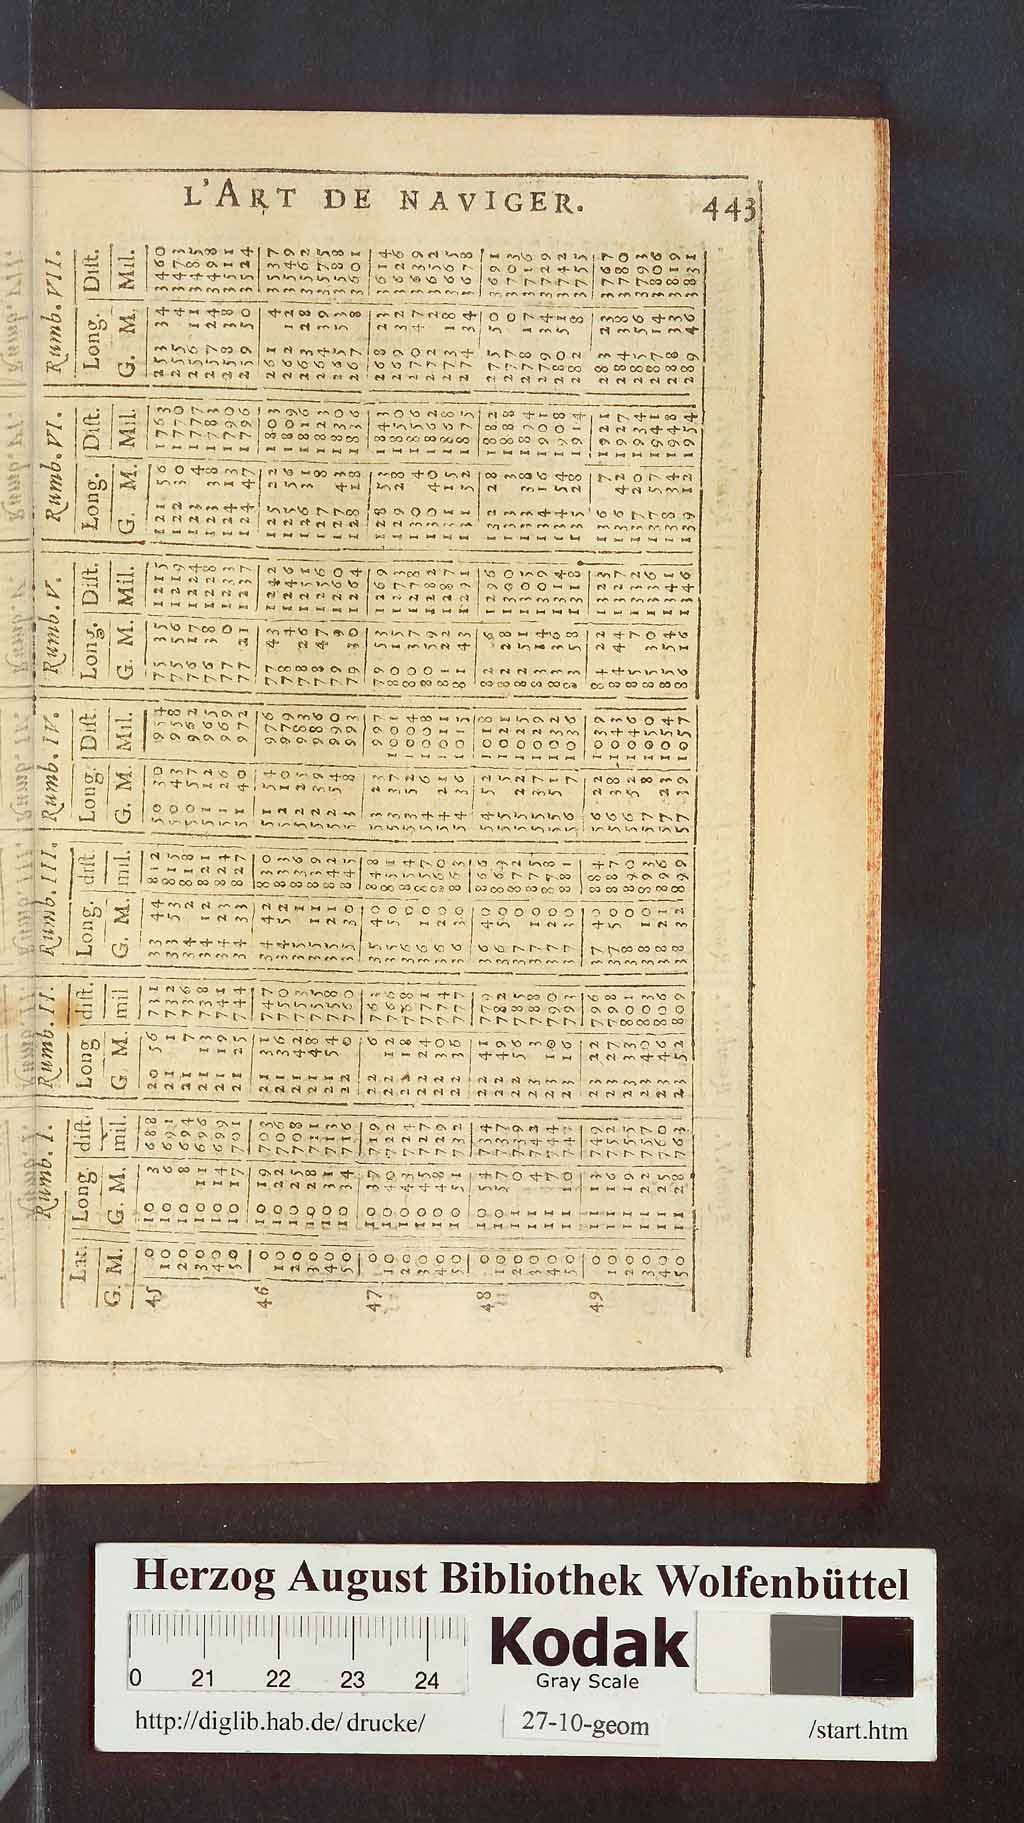 L'ART DE NAVIGER. 443
Rumb. I. Rumb. II. Rumb. III. Rumb. IV. Rumb. V. Rumb. VI. Rumb. VII.
Lat. Long. dist. Long dist. Long. dist Long. Dist. Long. Dist. Long. Dist. Long. Dist.
G. M. G. M. mil. G. M. mil G. M. mil. G. M. Mil. G. M. Mil. G. M. Mil. G. M. Mil.
45 0 10 3 688 20 56 731 33 44 812 50 30 954 75 35 1215 121 56 1763 253 34 3460
10 10 6 691 21 1 732 33 53 815 50 43 958 75 56 1219 122 30 1770 255 4 3473
20 10 8 694 21 7 736 34 2 818 50 57 962 76 17 1224 123 4 1777 256 11 3485
30 10 11 696 21 13 738 34 12 821 51 12 965 76 38 1228 123 38 1783 257 24 3498
40 10 14 699 21 19 741 34 23 824 51 26 969 77 0 1233 124 13 1790 258 38 3511
50 10 17 701 21 25 744 34 33 827 51 40 972 77 21 1237 124 47 1796 259 50 3524
46 0 10 19 703 21 31 747 34 42 830 51 54 976 77 43 1242 125 22 1803 261 4 3537
10 10 22 706 21 36 750 34 52 833 52 10 979 78 4 1246 125 56 1809 262 12 3549
20 10 25 708 21 42 753 35 1 836 52 25 983 78 26 1251 126 31 1816 263 28 3562
30 10 28 711 21 48 755 35 11 839 52 39 986 78 47 1256 127 8 1823 264 39 3575
40 10 31 713 21 54 758 35 21 842 52 54 990 79 9 1260 127 43 1830 265 53 3588
50 10 34 716 22 0 760 35 30 845 53 8 993 79 30 1264 128 18 1836 267 8 3601
47 0 10 37 719 22 6 763 35 40 848 53 23 997 79 53 1269 128 53 1843 268 23 3614
10 10 40 722 22 12 766 35 50 851 53 37 1001 80 15 1273 129 28 1850 269 32 3626
20 10 43 724 22 18 768 36 0 854 53 52 1004 80 37 1278 130 4 1856 270 47 3639
30 10 45 727 22 24 771 36 10 857 54 6 1008 80 59 1282 130 40 1862 272 2 3652
40 10 48 729 22 30 774 36 20 860 54 21 1011 81 22 1287 131 15 1868 273 18 3665
50 10 51 732 22 36 777 36 30 863 54 36 1015 81 43 1291 131 52 1875 274 34 3678
48 0 10 54 734 22 41 779 36 40 866 54 52 1018 82 6 1296 132 28 1882 275 50 3691
10 10 57 737 22 49 782 36 50 869 55 5 1021 82 28 1300 133 3 1888 277 0 3703
20 11 0 739 22 56 785 37 0 872 55 22 1025 82 51 1305 133 38 1894 278 17 3716
30 11 4 742 23 3 788 37 10 875 55 37 1029 83 14 1309 134 16 1901 279 34 3729
40 11 7 744 23 10 790 37 20 878 55 51 1032 83 36 1314 134 54 1908 280 51 3742
50 11 10 747 23 16 793 37 30 881 56 7 1036 83 58 1318 135 28 1914 282 8 3755
49 0 11 13 749 23 22 796 37 40 884 56 22 1039 84 22 1323 136 7 1921 283 23 3767
10 11 16 752 23 27 798 37 50 887 56 38 1043 84 44 1327 136 42 1927 284 38 3780
20 11 19 755 23 33 801 38 0 890 56 52 1046 85 7 1332 137 20 1934 285 56 3793
30 11 22 757 23 40 803 38 10 893 57 8 1050 85 30 1336 137 57 1941 287 14 3806
40 11 25 760 23 46 806 38 21 896 57 23 1054 85 54 1341 138 34 1948 288 33 3819
50 11 28 763 23 52 809 38 32 899 57 39 1057 86 16 1346 139 12 1954 289 46 3831
Herzog August Bibliothek Wolfenbüttel
Kodak
Gray Scale
0 21 22 23 24
http://diglib.hab.de/drucke/ 27-10-geom /start.htm